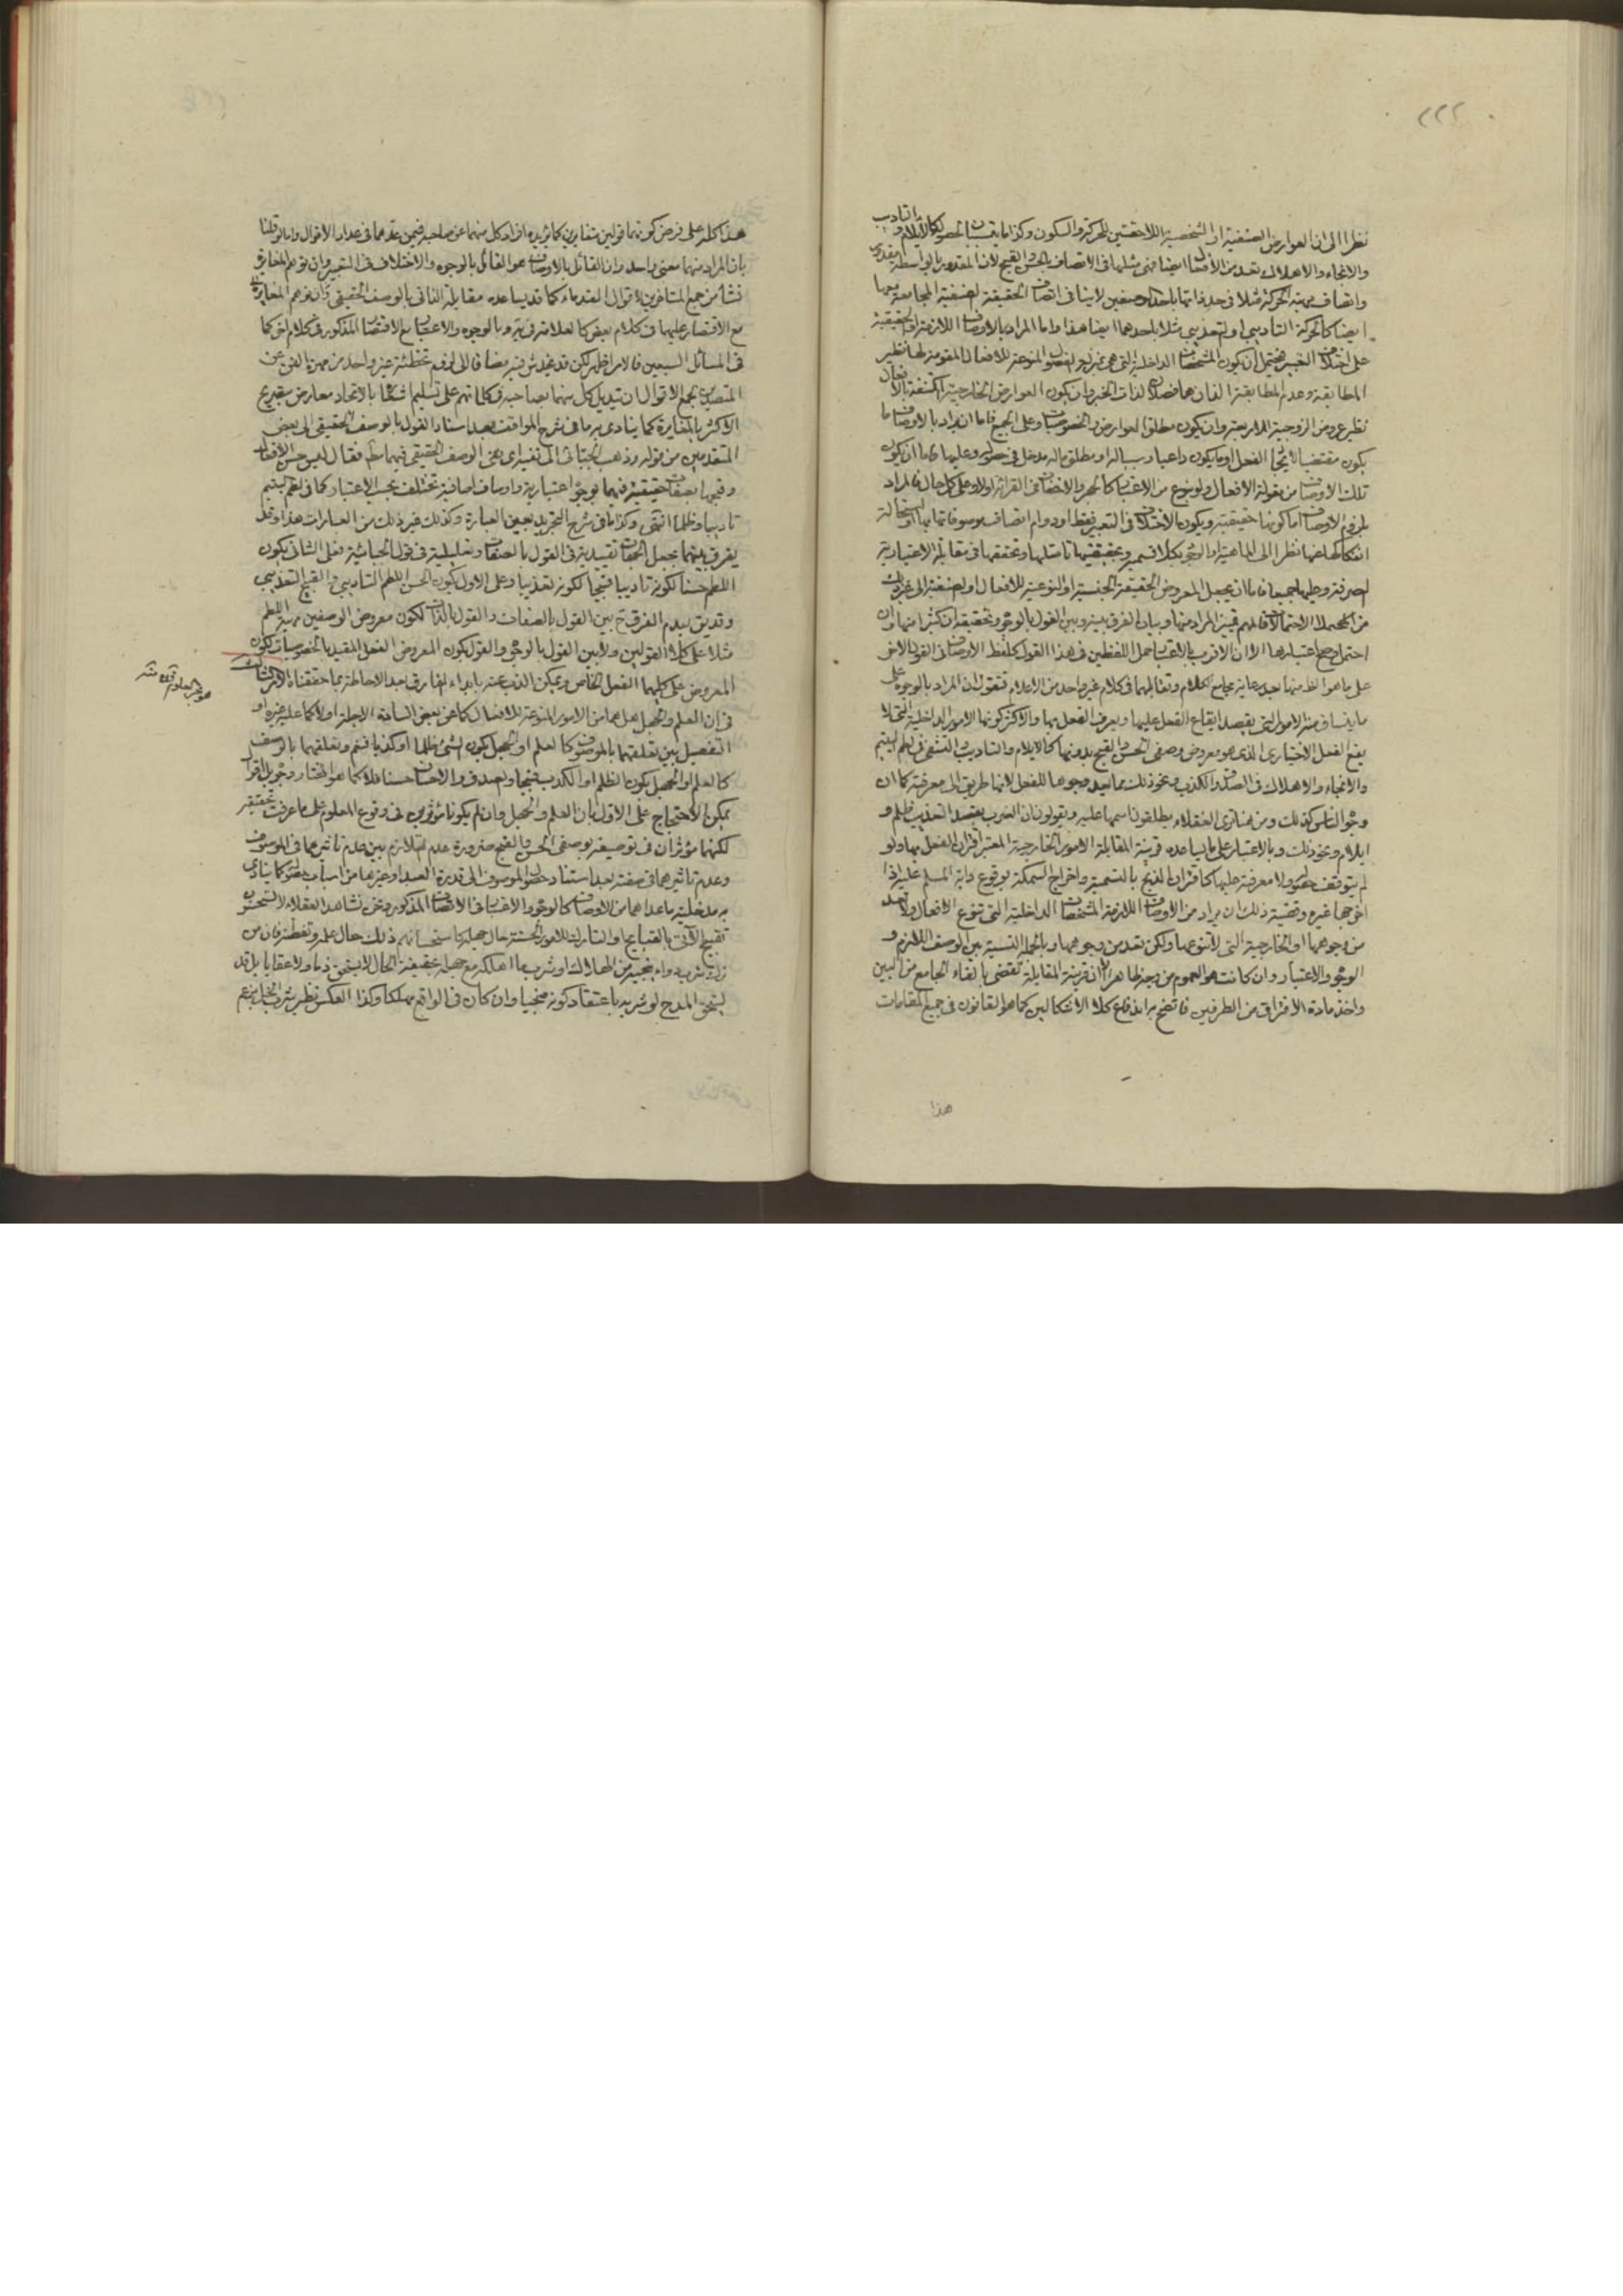 ٢٢٢
نظرا الى ان العوارض الصنفية او الشخصية اللاحقتين للحركة والسكون وكذا ما يقرب
والانجاء والاهلاك تعد من الافعال ايضا فهي مثلها في الاتصاف بالحسن والقبح لان المقدور بالواسطة مقدور
واتصاف مهية الحركة مثلا في حد ذاتها باحد الوصفين لا ينافي اتصاف الحقيقة الصنفية المجامعة معها
ايضا كالحركة التأديبي او التعذيبي مثلا باحدهما ايضا هذا واما المراد بالاوصاف اللازمة او الحقيقية
على اختلاف التعبير فيحتمل ان يكون المشخصات الداخلية التي هي بمنزلة الفصول المنوعة للافعال المقومة لها نظير
المطابقة وعدم المطابقة اللذان هما فصلان لذات الخبر وان يكون العوارض الخارجية المكتنفة بالافعال
نظير عروض الزوجية للاربعة وان يكون مطلق العوارض والخصوصيات وعلى الجميع فاما ان يراد بالاوصاف ما
يكون مقتضيا لايجاد الفعل او ما يكون داعيا وسبباله او مطلق ماله مدخل في حصوله وعليها فاما ان يكون
تلك الاوصاف من مقولة الافعال ولو بنوع من الاعتبار كالجهر والاخفات في القرائة او لا وعلى كل حال فالمراد
بلزوم الاوصاف اما كونها حقيقية ويكون الاختلاف في التعبير فقط او دوام اتصاف موصوفاتها بها او استحالة
انفكاكها عنها نظرا الى الماهية او الوجود بكلا قسميه وبحقيقيتها تاصلها وتحققها في مقابلة الاعتبارية
الصرفة وعليها جميعا فاما ان يجعل المعروض الحقيقة الجنسية او النوعية للافعال او الصنفية الى غير ذلك
من المحتملات
على ما هو الظ منها بعد رعاية مجامع الكلام وتقابلهما في كلام غير واحد من الاعلام فنقول ان المراد بالوجوه على
ما ينساق منه الامور التي يقصد ايقاع الفعل عليها ويعرف الفعل بها والاكثر كونها الامور الداخلية التي لا
يقع الفعل الاختياري الذي هو معروض وصفي الحسن والقبح بدونها كالايلام والتاديب والتشفي في لطم اليتيم
والانجاء والاهلاك في الصدق والكذب ونحو ذلك مما يعد وجوها للفعل لانها طريق الى معرفته كما ان
وجوه الناس كذلك ومن هنا ترى العقلاء يطلقون اسمها عليه ويقولون ان الضرب بقصد التعذيب ظلم و
ايلام ونحو ذلك وبالاعتبار على ما يساعده قرينة المقابلة الامور الخارجية المعتبر اقتران الفعل بها ولو
لم يتوقف حصوله ولا معرفته عليها كاقتران الذبح بالتسمية واخراج السمكة بوقوع داية المسلم عليه اذا
اخرجها غيره وقضية ذلك ان يراد من الاوصاف اللازمة المشخصات الداخلية التي تنوع الافعال ولا تعد
من وجوهها او الخارجية التي لا تنوعها ولكن تعد من وجوهها وبالجملة النسبة بين الوصف اللازم و
الوجوه والاعتبار وان كانت هو العموم من وجه ظاهرا الا ان قرينة المقابلة تقضي بالقاء الجامع من البين
واخذ مادة الافتراق من الطرفين فاتضح به اندفاع كلا الاشكالين كما هو القانون في جميع المقامات
هذا
هذا كله على فرض كونهما قولين متغايرين كما يؤيده افراد كل منهما عن صاحبه فيمن عدهما في عداد الاقوال واما لو قلنا
بان المراد منهما معنى واحد وان القائل بالاوصاف هو القائل بالوجوه والاختلاف في التعبير وان توهم المغايرة
نشأ من جمع المتاخرين لاقوال القدماء كما قد يساعده مقابلة الثاني بالوصف الحقيقي
مع الاقتصار عليهما في كلام بعض كالعلامة في يه وبالوجوه والاعتبار مع الاقتصار المذكور في كلام اخر كما
في المسائل السبعين فالامر اظهر لكن قد يخدش فيه مضافا الى لزوم تخطئة غير واحد من مهرة الفن عن
المتصدين لجمع الاقوال
الاكثر بالمغايرة كما ينادى به ما في شرح المواقف بعد اسناد القول بالوصف الحقيقي الى بعض
المتقدمين من قوله وذهب الجبائي الى نفيه اى نفي الوصف الحقيقي فيهما مطلقا فقال ليس حسن الافعال
وقبحها لصفات حقيقية فيهما بل لوجوه اعتبارية واوصاف اضافية تختلف بحسب الاعتبار كما في لطم اليتيم
تاديبا وظلما انتهى وكذا ما في شرح التجريد بعين العبارة وكذلك غير ذلك من العبارات هذا وقد
يفرق بينهما بجعل الجهات تقييدية في القول بالصفات وتعليلية في قول الجبائية فعلى الثاني يكون
اللطم حسنا لكونه تاديبا وقبيحا لكونه تعذيبا وعلى الاول يكون الحسن اللطم التاديبي والقبيح التعذيبي
وقد يق بعدم الفرق ح بين القول بالصفات والقول بالذات لكون معروض الوصفين مهية اللطم
مثلا على كلا القولين ولا بين القول بالوجوه والقول بكون المعروض الفعل المقيد بالخصوصيات لكون
المعروض على كليهما الفعل الخاص ويمكن الذب عنه بابداء الفارق بعد الاحاطة بما حققناه
في ان العلم والجهل هل هما من الامور المنوعة للافعال كما عن بعض السادة الاجلة او لا كما عليه غيره او
التفصيل بين تعلقهما بالموصوف كالعلم او الجهل بكون الشئ ظلما او كذبا فنعم وتعلقهما بالوصف
كالعلم او الجهل بكون الظلم او الكذب قبيحا والصدق والاحسان حسنا فلا كما هو المختار وجوه بل اقوال
يمكن الاحتجاج على الاول بان العلم والجهل وان لم يكونا مؤثرين في وقوع المعلوم على ما عرفت تحقيقه
لكنهما مؤثران في توصيفه بوصفي الحسن والقبح ضرورة عدم التلازم بين عدم تاثيرهما في الموصوف
وعدم تاثيرهما في صفته بعد استناد حصول الموصوف الى قدرة العبد او غيرها من اسباب حصوله كما ينادى
به مدخلية ما عداهما من الاوصاف كالوجوه والاعتبار في الاتصاف المذكور ونحن نشاهد العقلاء لا يستحسنون
تقبيح الآتي بالقبايح او التارك للامور الحسنة حال جهله كاستحسانهم ذلك حال علمه وتفطنه فان من
ترك شرب دواء ينجيه من الهلاك او شرب ما اهلكه مع جهله بحقيقة الحال لا يستحق ذما ولا عقابا بل قد
يستحق المدح لو شربه باعتقاد كونه منجيا وان كان في الواقع مهلكا وكذا العكس نظير شرب